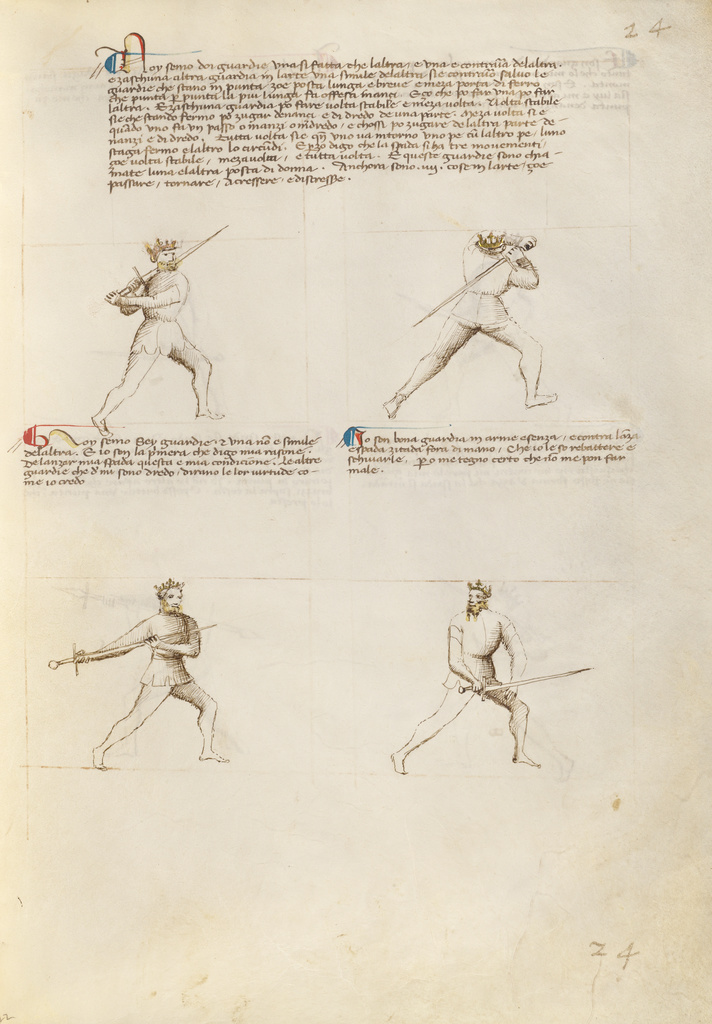 24
Noy semo doi guardie una si fatta che laltra, e una e contraria delaltra.
e zaschuna altra guardia in larte una simile delaltra sie contrario salvo le
guardie che stano in punta, zoe posta lunga e breve e meza porta di ferro
che punta per punta la piu lunga fa offesa inanci. E zo che po far una po far
laltra. E zaschuna guardia po fare volta stabile e meza volta. Volta stabile
sie che stando fermo po zugar denanci e di dredo de una parte. Meza volta si e
quando uno fa un passo o inanzi o indredo, e chossi po zugare de laltra parte de
inanzi e di dredo. Tutta volta sie quando uno va intorno uno pe cum laltro pe, luno
staga fermo e laltro lo circundi. E perzo digo che la spada si ha tre movimenti,
zoe volta stabile, meza volta, e tutta volta. E queste guardie sono chia-
mate luna e laltra posta di donna. Anchora sono .iiij. cose in larte, zoe
passare, tornare, acressere, e discresse.
Noy semo Sey guardie, & una non e simile
de laltra. E io son la primera che digo mia rasone.
De lanzar mia spada questa e mia condicione. Le altre
guardie che de mi sono dredo, dirano le lor virtude co-
me io credo
Io son bona guardia in arme e senza, e contra lanza
e spada zitada fora di mano, Che io le so rebattere e
schivarle. Pero me tegno certo che non me pon far
male.
24